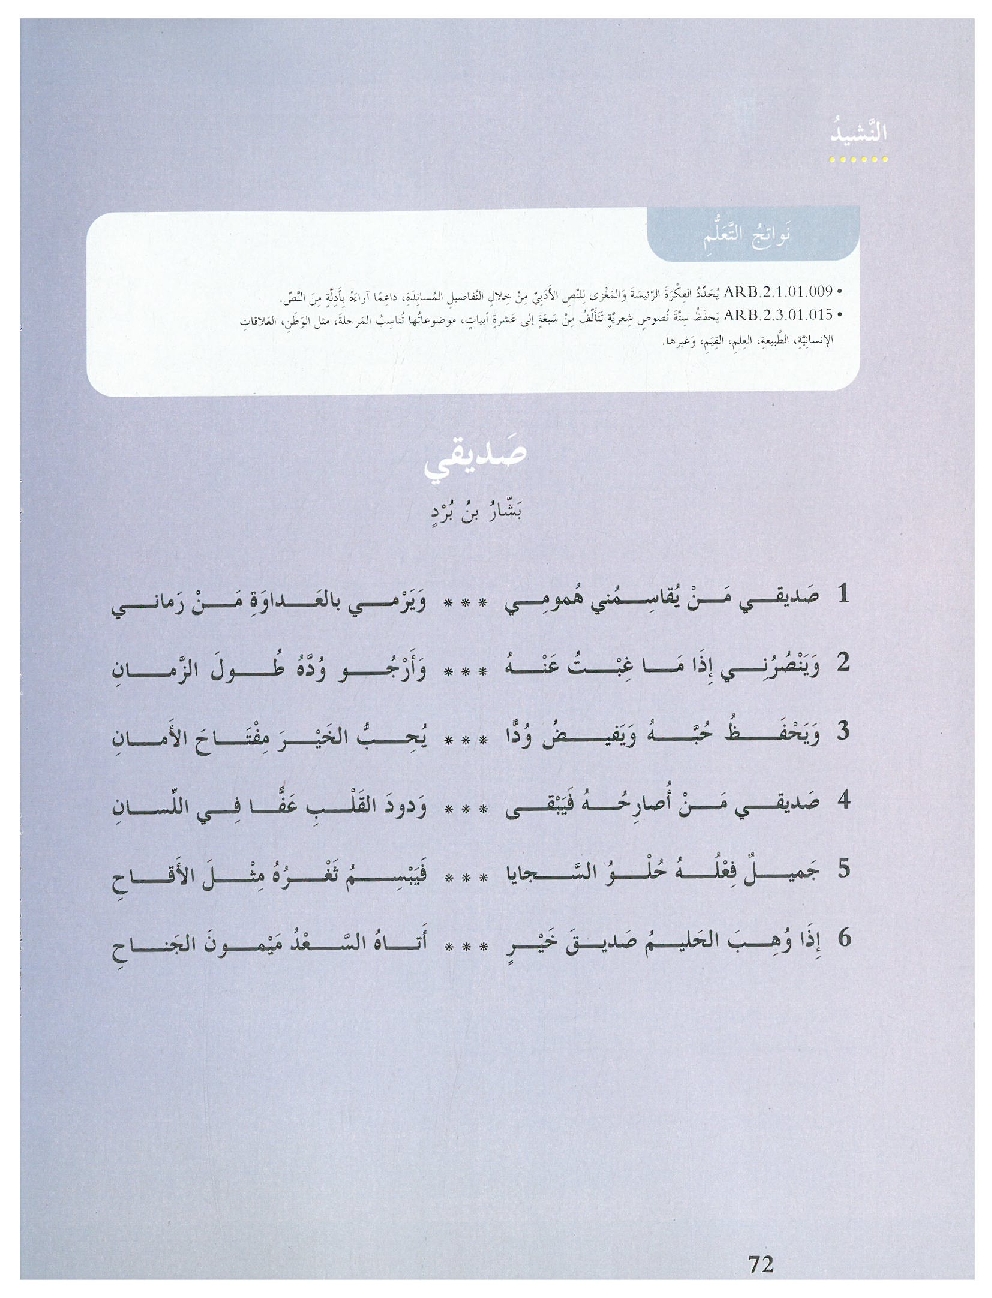 النَّشيدُ
نَواتِجُ التَّعَلُّمِ
• ARB.2.1.01.009 يُحَدِّدُ الفِكْرَةَ الرَّئيسَةَ وَالمَغْزى لِلنَّصِ الأَدَبِيِّ مِنْ خِلالِ التَّفاصيلِ المُسانِدَةِ، داعِمًا آراءَهُ بِأَدِلَّةٍ مِنَ النَّصِّ.
• ARB.2.3.01.015 يَحفَظُ سِتَّةَ نُصوصٍ شِعرِيَّةٍ تَتَأَلَّفُ مِنْ سَبعَةِ إلى عَشرَةِ أبياتٍ، موضوعاتُها تُناسِبُ المَرحلةَ، مثل الوَطَنِ، العَلاقاتِ
الإنسانِيَّةِ، الطَّبيعةِ، العِلمِ، القِيَمِ، وَغيرها.
صَديقي
بَشّارُ بنُ بُرْدٍ
1 صَديقي مَنْ يُقاسِمُني هُمومي *** وَيَرْمي بالعَداوَةِ مَنْ رَماني
2 وَيَنْصُرُني إِذَا مَا غِبْتُ عَنْهُ *** وَأَرْجُو وُدَّهُ طُولَ الزَّمانِ
3 وَيَحْفَظُ حُبَّهُ وَيَفيضُ وُدًّا *** يُحِبُّ الخَيْرَ مِفْتَاحَ الأَمانِ
4 صَديقي مَنْ أُصارِحُهُ فَيَبْقى *** وَدودَ القَلْبِ عَفًّا فِي اللِّسانِ
5 جَميلٌ فِعْلُهُ حُلْوُ السَّجايا *** فَيَبْسِمُ ثَغْرُهُ مِثْلَ الأَقاحِ
6 إِذَا وُهِبَ الحَليمُ صَديقَ خَيْرٍ *** أَتاهُ السَّعْدُ مَيْمونَ الجَناحِ
72